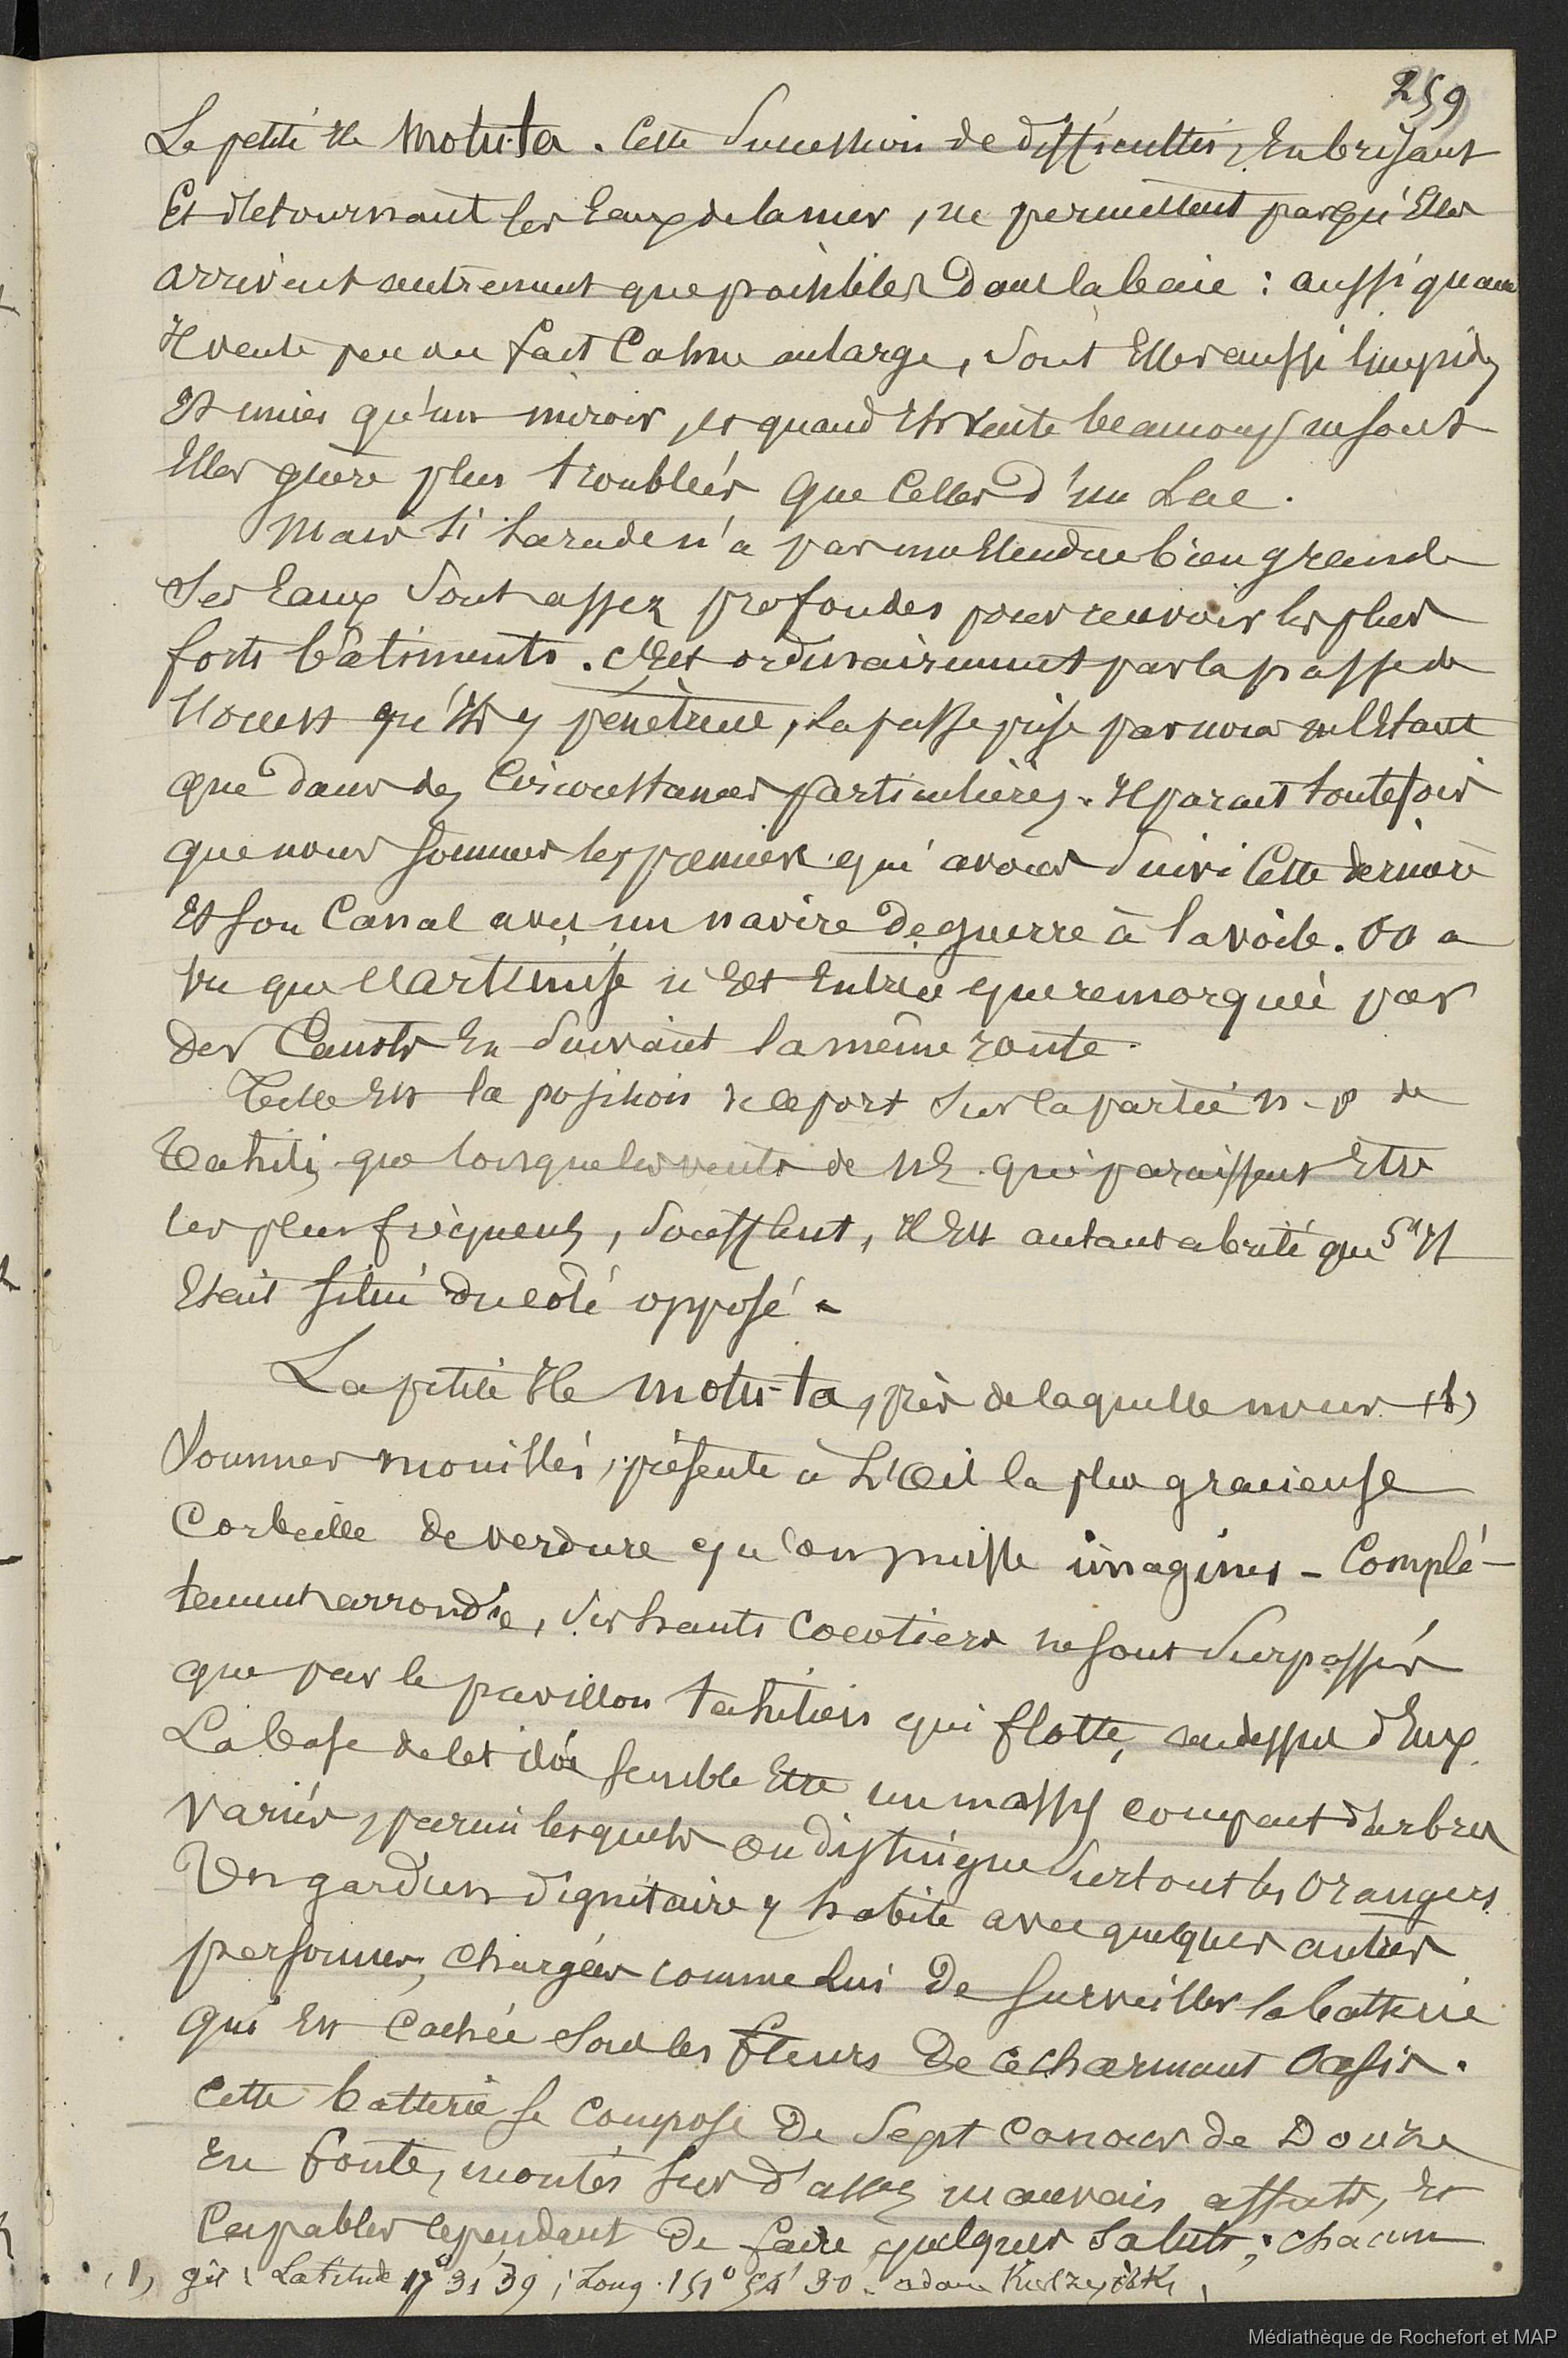 259
La petite Ile Motu-ta. Cette Succession de difficultés, En brisant
Et detournant les Eaux de la mer, ne permettent pas qu'Elles
arrivent autrement que paisibles Dans la baie : aussi quand
Il vente peu ou fait Calme au large, Sont Elles aussi limpides
Et unies qu'un miroir, et quand Il vente beaucoup ne sont
Elles guère plus troublées que Celles d'un Lac.
Mais Si La rade n'a pas une Etendue bien grande
Ses Eaux Sont assez profondes pour recevoir les plus
forts bâtiments. C'Est ordinairement par la passe de
l'ouest qu'Ils y pénètrent, La passe prise par nous ne l'Etant
que dans des Circonstances particulières. Il parait toutefois
que nous sommes les premiers qui avons Suivi Cette dernière
Et son Canal avec un navire De guerre à la voile. On a
vu que l'artémise n'Est Entrée que remorquée par
des Canots En Suivant la même route.
Telle Est la position de ce port Sur la partie n-o de
Tahiti, que lorsque les vents de NE qui paraissent Etre
les plus fréquents, Soufflent, Il Est autant abrité que S'Il
Etait Situé du côté opposé.
La petite Ile motu-ta, près de laquelle nous (1)
Sommes mouillés, présente à L'Œil la plus gracieuse
Corbeille de verdure qu'on puisse imaginer - Complé-
tement arrondie, Ses hauts Cocotiers ne sont Surpassés
que par le pavillon tahitien qui flotte, au dessus d'Eux.
La base de cet ilot semble Etre un massif compact d'arbres
variés, parmi lesquels on distingue Surtout les Orangers
Un gardien dignitaire y habite avec quelques autres
personnes, chargées comme Lui De surveiller la batterie
qui Est Cachée Sous les fleurs De ce charmant Oasis.
Cette batterie se compose De Sept Canons de Douze
En fonte, montés sur d'assez mauvais affuts, Et
Capables cependant De faire quelques Saluts ; chacun
(1) gît : Latitude 17° 31' 39 ; Long. 151° 54' 30.
Médiathèque de Rochefort et MAP